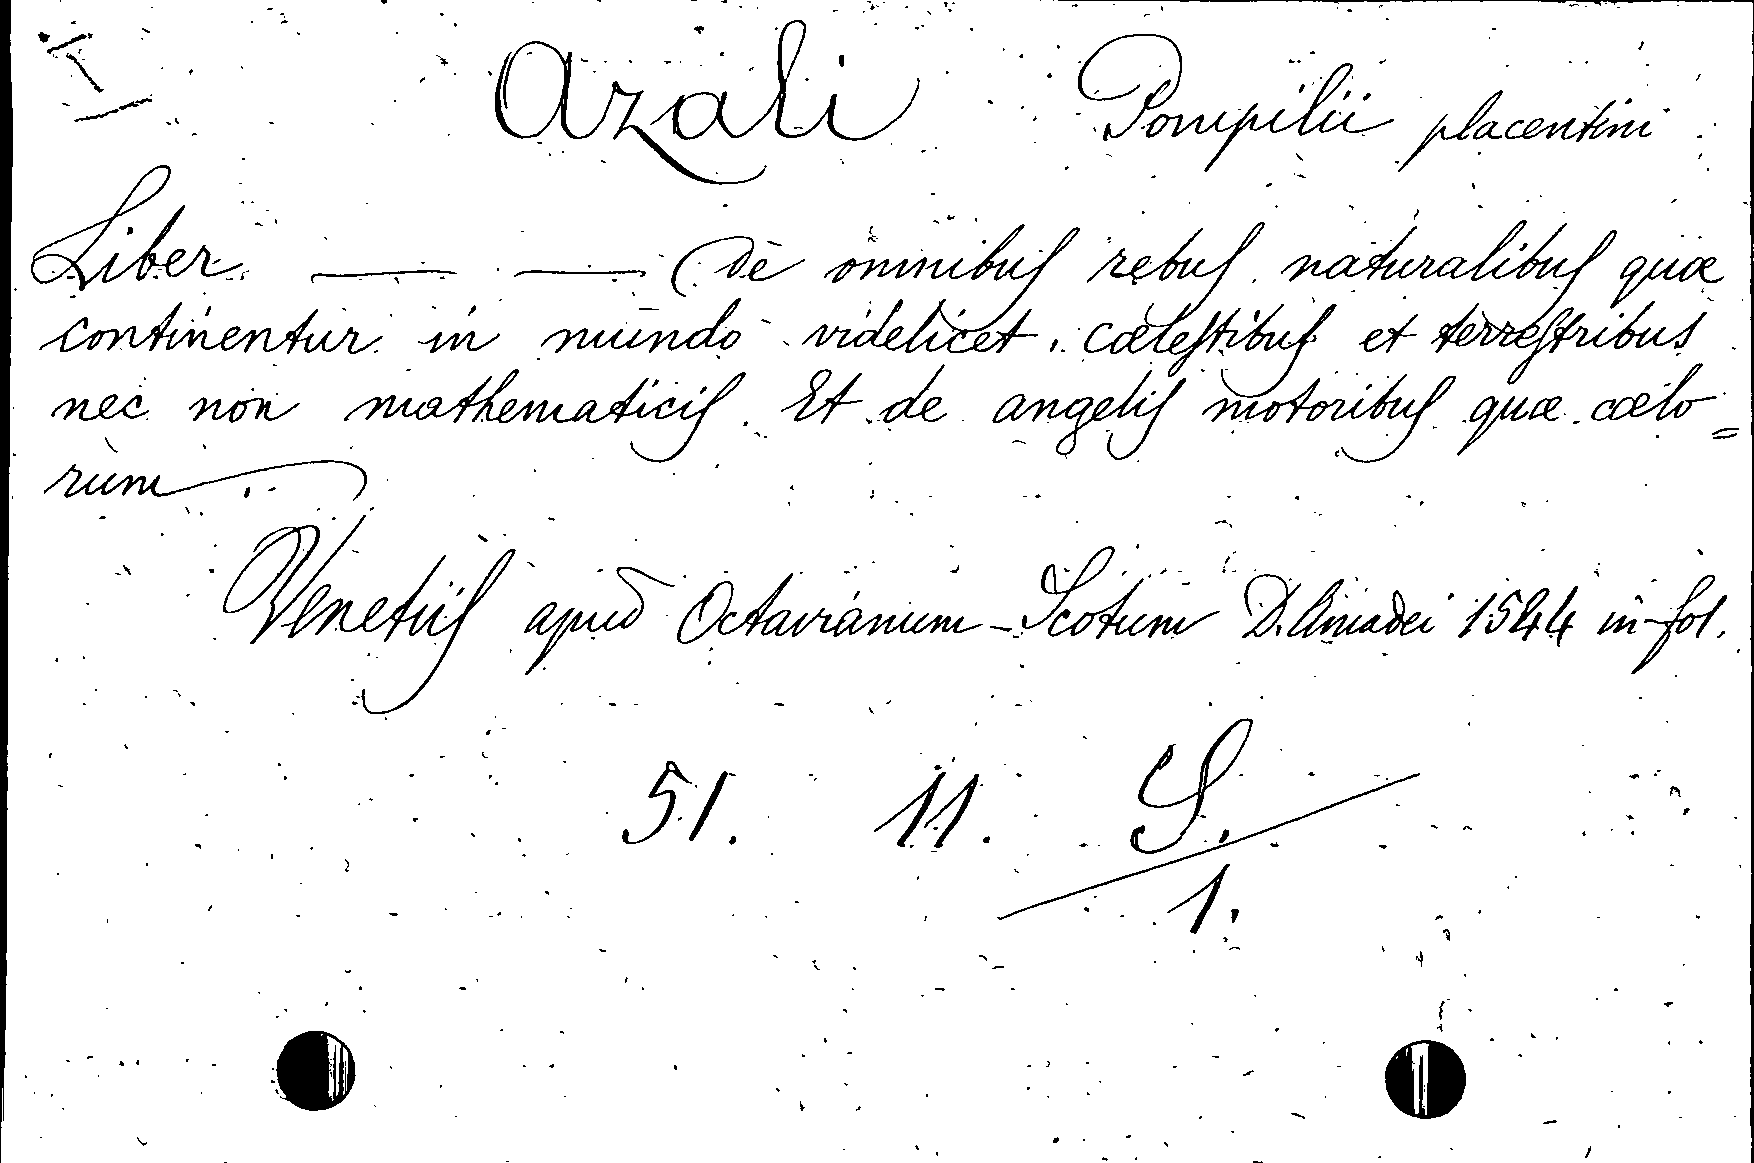 Azali Pompilii placentini
Liber — — (de omnibus rebus naturalibus quæ
continentur in mundo videlicet. cœlestibus et terrestribus
nec non mathematicis. Et de angelis motoribus quæ cœlo=
rum)
Venetiis apud Octavianum-Scotum D. Amadei 1544 in-fol.
51. 11. S.
1.